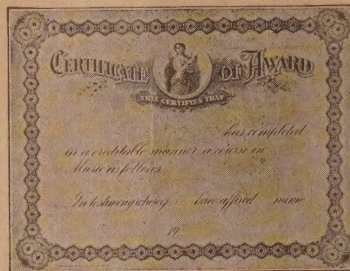 CERTIFICATE OF AWARD
THIS CERTIFIES THAT
has completed
in a creditable manner a course in
Music as follows
In testimony whereof I have affixed name
19